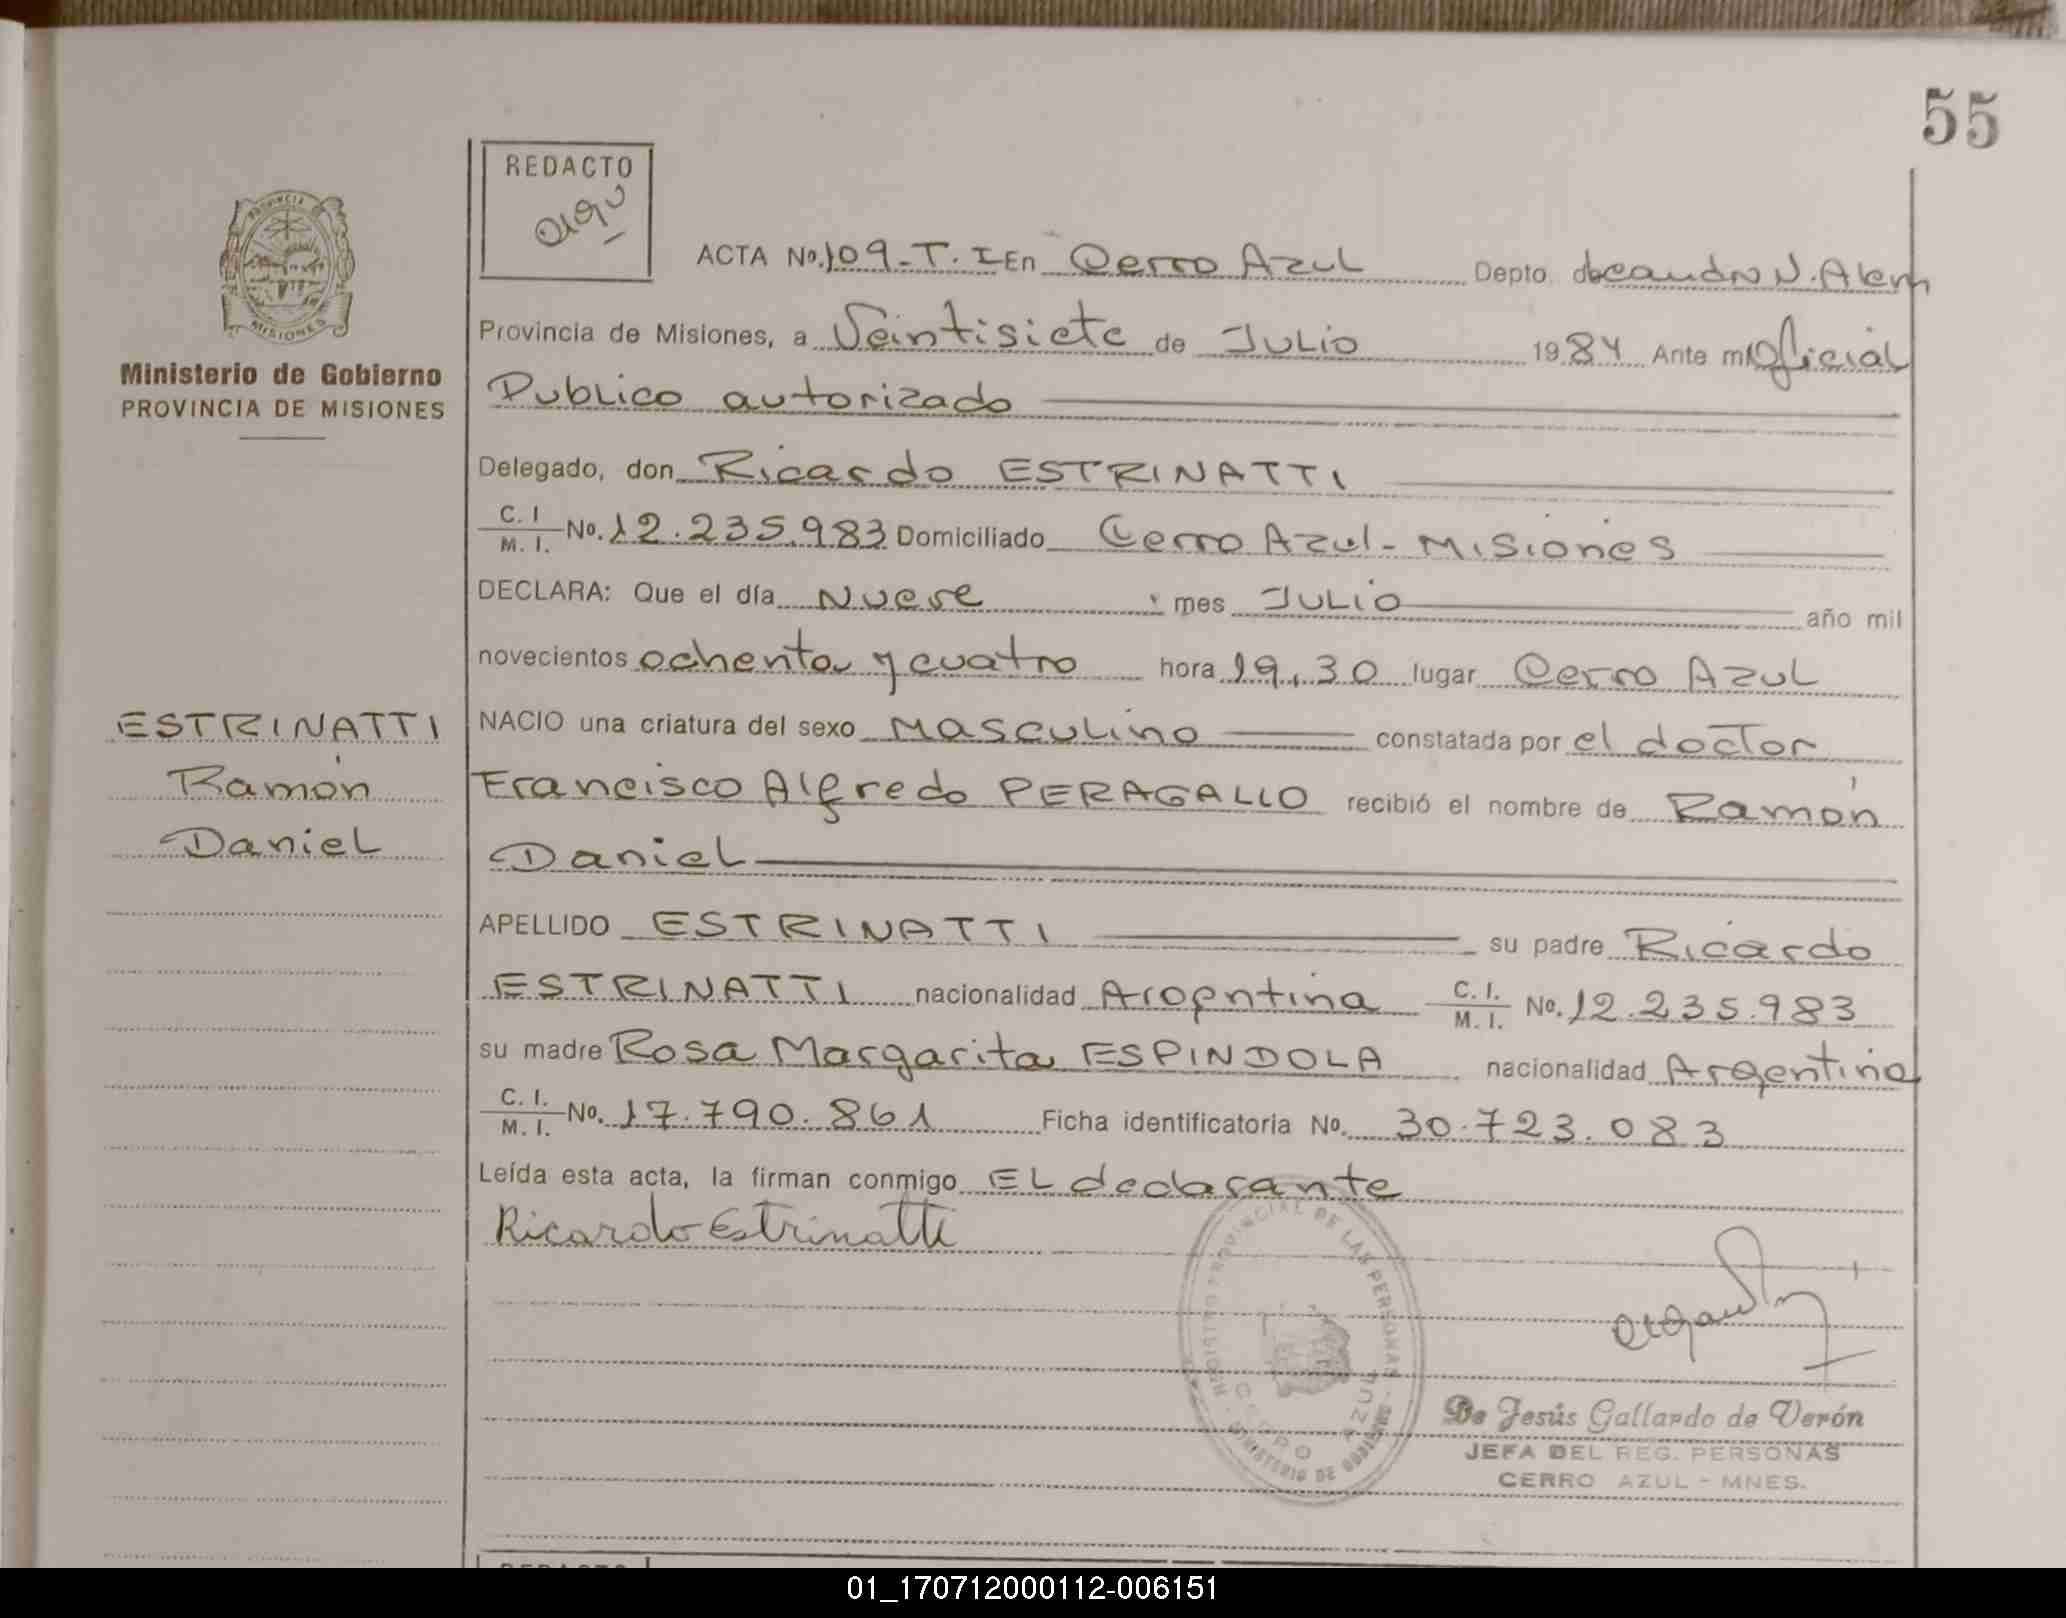 55
REDACTO
ACTA No. 109-T.I En Cerro Azul Depto. de Leandro N. Alem
Provincia de Misiones, a Veintisiete de Julio 1984 Ante mí Oficial
Publico autorizado
Delegado, don Ricardo ESTRINATTI
C. I. / M. I. No. 12.235.983 Domiciliado Cerro Azul - Misiones
DECLARA: Que el día Nueve mes Julio año mil
novecientos ochenta y cuatro hora 19,30 lugar Cerro Azul
NACIO una criatura del sexo Masculino constatada por el doctor
Francisco Alfredo PERAGALLO recibió el nombre de Ramón
Daniel
APELLIDO ESTRINATTI su padre Ricardo
ESTRINATTI nacionalidad Argentina C. I. / M. I. No. 12.235.983
su madre Rosa Margarita ESPINDOLA nacionalidad Argentina
C. I. / M. I. No. 17.790.861 Ficha identificatoria No. 30.723.083
Leída esta acta, la firman conmigo EL declarante
Ricardo Estrinatti
PROVINCIA
MISIONES
Ministerio de Gobierno
PROVINCIA DE MISIONES
ESTRINATTI
Ramón
Daniel
REGISTRO PROVINCIAL DE LAS PERSONAS - MINISTERIO DE GOBIERNO
CERRO AZUL
De Jesús Gallardo de Verón
JEFA DEL REG. PERSONAS
CERRO AZUL - MNES.
REDACTO
01_170712000112-006151